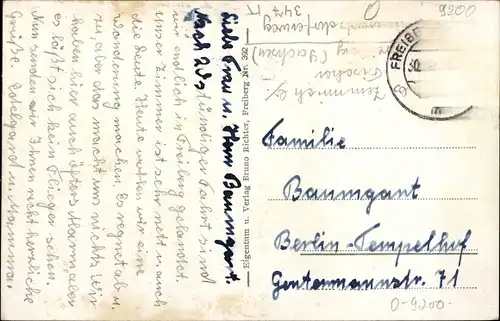 Liebe Frau u. Herr Baumgart.
Nach 20 stündiger Fahrt sind
wir endlich in Freiberg gelandet.
Unser Zimmer ist sehr nett u. auch
die Leute. Heute wollen wir eine
Wanderung machen. Es regnet ab u.
zu, aber das macht uns nichts. Wir
haben hier auch öfters Alarm, aber
es läßt sich kein Flieger sehen.
Nun senden wir Ihnen recht herzliche
Grüße. Edelgard u.
Eigentum u. Verlag Bruno Richter, Freiberg Nr. 362
347
(Sachsen)
O
9200
FREIBE
30.
Familie
Baumgart
Berlin-Tempelhof
Gontermannstr. 71
O-9200-